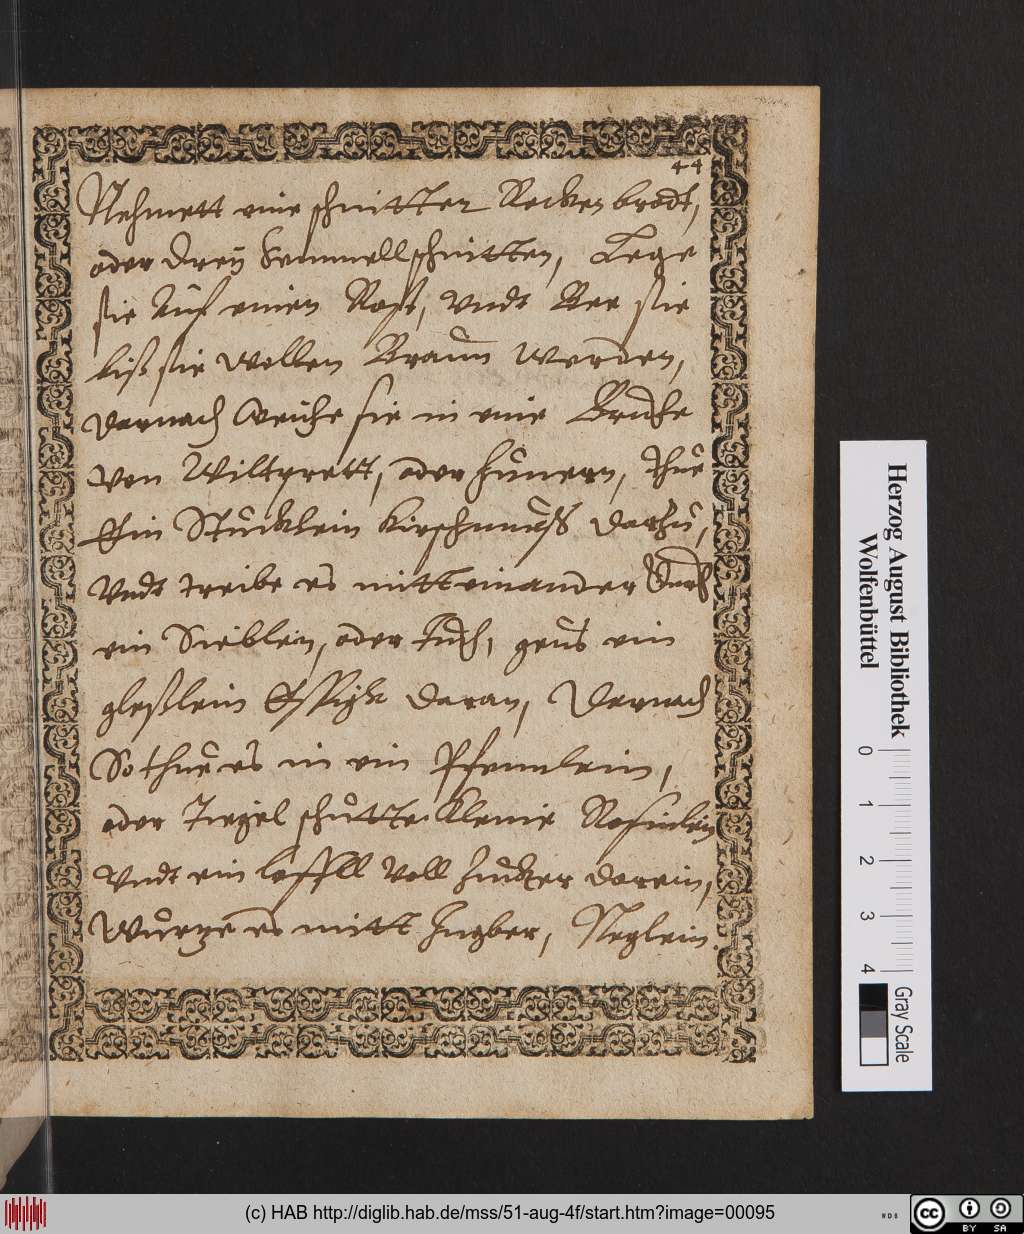 44
Nehmett eine schnitten Rocken brodt,
oder drey Semmellschnitten, Lege
sie Auf einen Rost, Vndt Bee sie
biß sie wollen Braun werden,
darnach weiche sie in eine Bruhe
von Wiltprett, oder hünern, Thue
Ein Stücklein kirschmuß darzu,
Vndt treibe es mitt einander durch
ein Sieblein, oder Tuch, geus ein
gleßlein Essigk daran, Darnach
So thue es in ein Pfennlein,
oder Tiegel schütte kleine Rosinlein
Vndt ein leffell Voll zucker darein,
Würze es mitt Ingber, Neglein
Herzog August Bibliothek
Wolfenbüttel
0 1 2 3 4
Gray Scale
(c) HAB http://diglib.hab.de/mss/51-aug-4f/start.htm?image=00095
WDB
cc BY SA